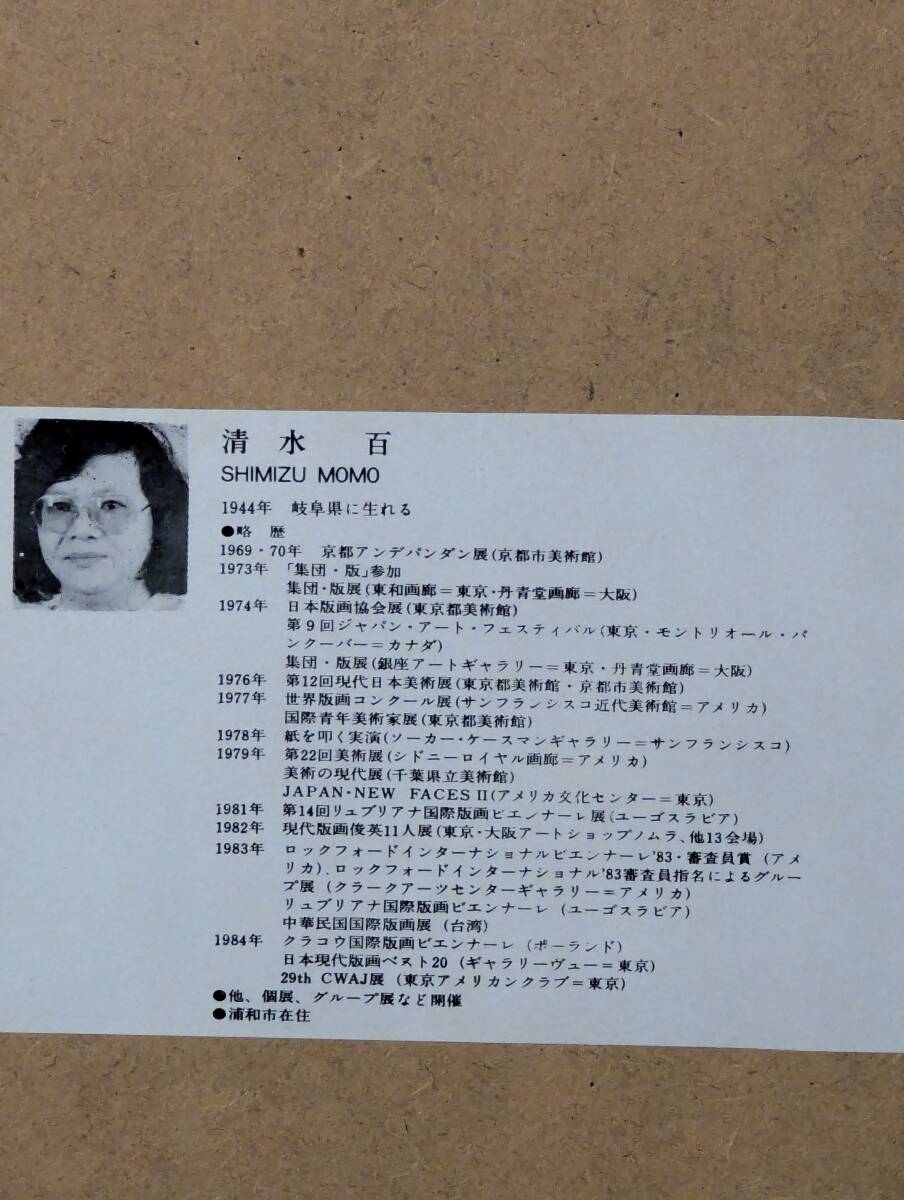 清水 百
SHIMIZU MOMO
1944年 岐阜県に生れる
●略 歴
1969・70年 京都アンデパンダン展(京都市美術館)
1973年 「集団・版」参加
集団・版展(東和画廊＝東京・丹青堂画廊＝大阪)
1974年 日本版画協会展(東京都美術館)
第9回ジャパン・アート・フェスティバル(東京・モントリオール・バ
ンクーバー＝カナダ)
集団・版展(銀座アートギャラリー＝東京・丹青堂画廊＝大阪)
1976年 第12回現代日本美術展(東京都美術館・京都市美術館)
1977年 世界版画コンクール展(サンフランシスコ近代美術館＝アメリカ)
国際青年美術家展(東京都美術館)
1978年 紙を叩く実演(ソーカー・ケースマンギャラリー＝サンフランシスコ)
1979年 第22回美術展(シドニーロイヤル画廊＝アメリカ)
美術の現代展(千葉県立美術館)
JAPAN・NEW FACES II(アメリカ文化センター＝東京)
1981年 第14回リュブリアナ国際版画ビエンナーレ展(ユーゴスラビア)
1982年 現代版画俊英11人展(東京・大阪アートショップノムラ、他13会場)
1983年 ロックフォードインターナショナルビエンナーレ'83・審査員賞 (アメ
リカ). ロックフォードインターナショナル'83審査員指名によるグルー
プ展 (クラークアーツセンターギャラリー＝アメリカ)
リュブリアナ国際版画ビエンナーレ (ユーゴスラビア)
中華民国国際版画展 (台湾)
1984年 クラコウ国際版画ビエンナーレ (ポーランド)
日本現代版画ベスト20 (ギャラリーヴュー＝東京)
29th CWAJ展 (東京アメリカンクラブ＝東京)
●他、個展、グループ展など開催
●浦和市在住